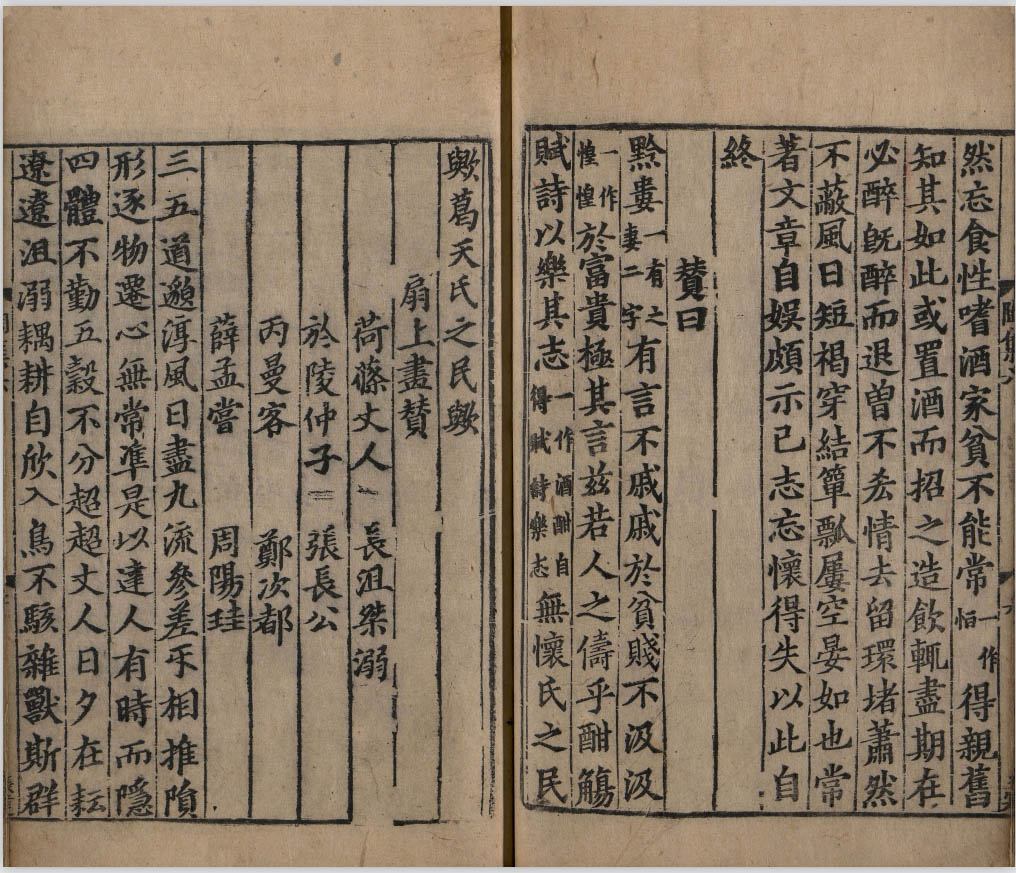 然忘食性嗜酒家貧不能常一作恒得親舊
知其如此或置酒而招之造飲輒盡期在
必醉旣醉而退曾不吝情去留環堵蕭然
不蔽風日短褐穿結簞瓢屢空晏如也常
著文章自娯頗示己志忘懷得失以此自
終
賛曰
黔婁一有之妻二字有言不戚戚於貧賤不汲汲
一作惶惶於富貴極其言兹若人之儔乎酣觴
賦詩以樂其志一作酒酣自得賦詩樂志無懷氏之民
歟葛天氏之民歟
扇上畫賛
荷蓧丈人 長沮桀溺
於陵仲子 張長公
丙曼容 鄭次都
薛孟嘗 周陽珪
三五道邈淳風日盡九流參差互相推隕
形逐物遷心無常準是以達人有時而隱
四體不勤五穀不分超超丈人日夕在耘
遼遼沮溺耦耕自欣入鳥不駭雜獸斯群